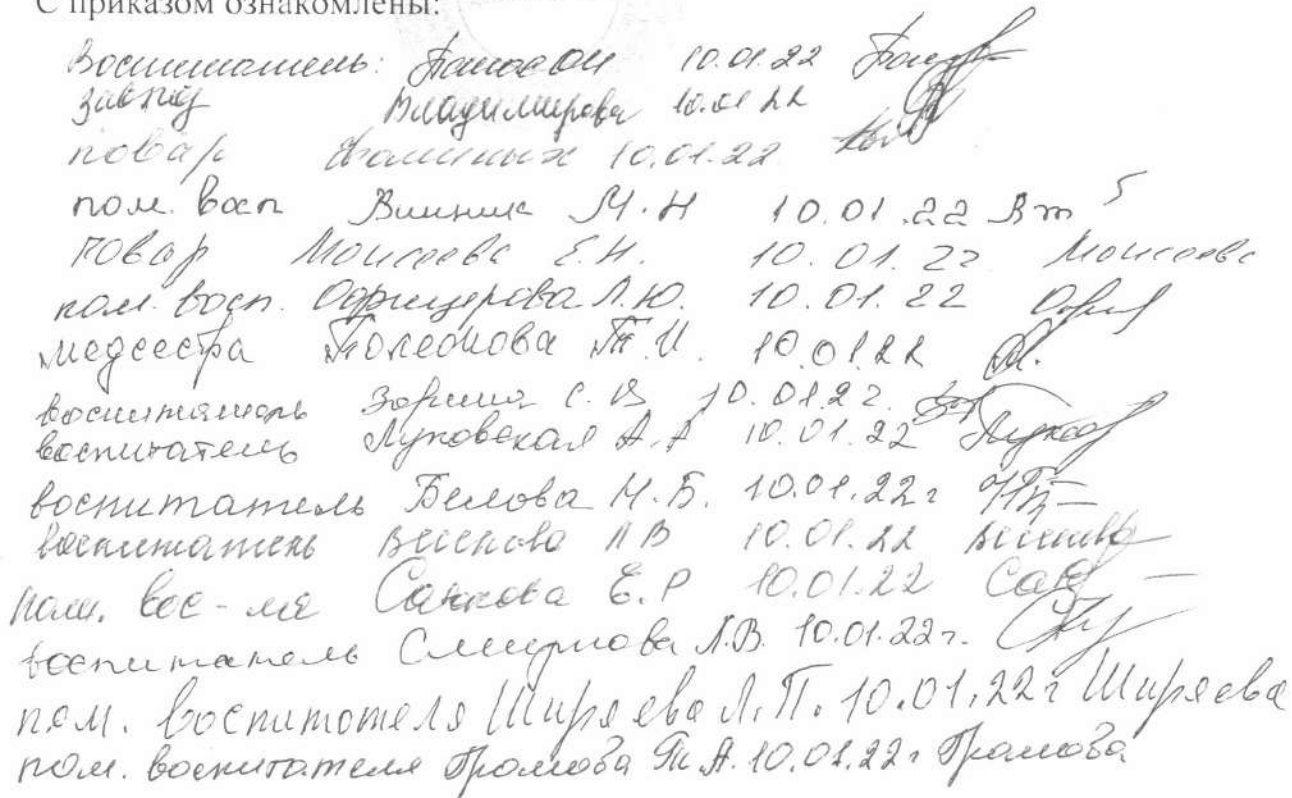 С приказом ознакомлены:
Воспитатель: 10.01.22
завхоз Владимирова 10.01.22
повар Фоминых 10.01.22
пом. восп Винник М.Н 10.01.22 Вт
повар Моисеева Е.Н. 10.01.22 Моисеева
пом. восп. Офицерова Л.Ю. 10.01.22 Офиц
медсестра Т.И. 10.01.22
воспитатель Зорина С.В 10.01.22.
воспитатель Луковская А.А 10.01.22
воспитатель Белова Н.Б. 10.01.22г
воспитатель ЛВ 10.01.22
пом. вос-ля Санкова Е.Р 10.01.22
воспитатель Смирнова Л.В. 10.01.22г.
пом. воспитателя Ширяева Л.П. 10.01.22г Ширяева
пом. воспитателя Громова Т.А. 10.01.22г Громова